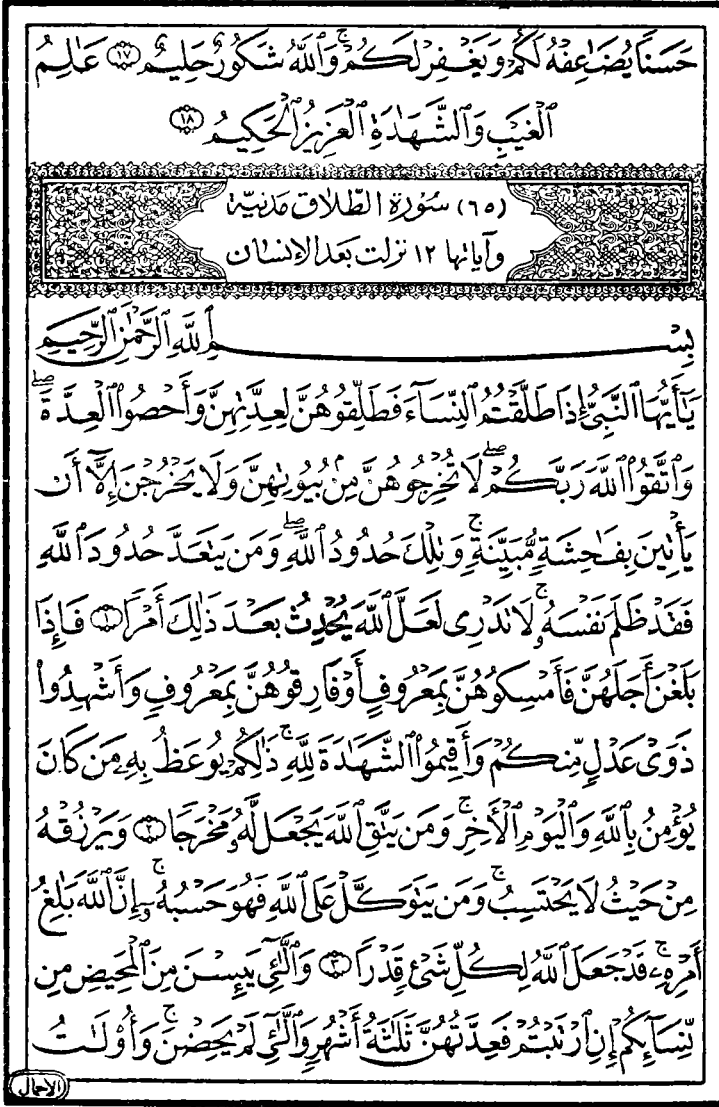 حَسَنًا يُضَٰعِفْهُ لَكُمْ وَيَغْفِرْ لَكُمْ ۚ وَٱللَّهُ شَكُورٌ حَلِيمٌ ١٧ عَٰلِمُ
ٱلْغَيْبِ وَٱلشَّهَٰدَةِ ٱلْعَزِيزُ ٱلْحَكِيمُ ١٨
(٦٥) سُورَة الطَّلَاق مَدَنِيَّة
وآياتها ١٢ نزلت بعد الإنسان
بِسْمِ ٱللَّهِ ٱلرَّحْمَٰنِ ٱلرَّحِيمِ
يَٰٓأَيُّهَا ٱلنَّبِىُّ إِذَا طَلَّقْتُمُ ٱلنِّسَآءَ فَطَلِّقُوهُنَّ لِعِدَّتِهِنَّ وَأَحْصُوا۟ ٱلْعِدَّةَ ۖ
وَٱتَّقُوا۟ ٱللَّهَ رَبَّكُمْ ۖ لَا تُخْرِجُوهُنَّ مِنۢ بُيُوتِهِنَّ وَلَا يَخْرُجْنَ إِلَّآ أَن
يَأْتِينَ بِفَٰحِشَةٍ مُّبَيِّنَةٍ ۚ وَتِلْكَ حُدُودُ ٱللَّهِ ۖ وَمَن يَتَعَدَّ حُدُودَ ٱللَّهِ
فَقَدْ ظَلَمَ نَفْسَهُۥ ۚ لَا تَدْرِى لَعَلَّ ٱللَّهَ يُحْدِثُ بَعْدَ ذَٰلِكَ أَمْرًا ١ فَإِذَا
بَلَغْنَ أَجَلَهُنَّ فَأَمْسِكُوهُنَّ بِمَعْرُوفٍ أَوْ فَارِقُوهُنَّ بِمَعْرُوفٍ وَأَشْهِدُوا۟
ذَوَىْ عَدْلٍ مِّنكُمْ وَأَقِيمُوا۟ ٱلشَّهَٰدَةَ لِلَّهِ ۚ ذَٰلِكُمْ يُوعَظُ بِهِۦ مَن كَانَ
يُؤْمِنُ بِٱللَّهِ وَٱلْيَوْمِ ٱلْءَاخِرِ ۚ وَمَن يَتَّقِ ٱللَّهَ يَجْعَل لَّهُۥ مَخْرَجًا ٢ وَيَرْزُقْهُ
مِنْ حَيْثُ لَا يَحْتَسِبُ ۚ وَمَن يَتَوَكَّلْ عَلَى ٱللَّهِ فَهُوَ حَسْبُهُۥٓ ۚ إِنَّ ٱللَّهَ بَٰلِغُ
أَمْرِهِۦ ۚ قَدْ جَعَلَ ٱللَّهُ لِكُلِّ شَىْءٍ قَدْرًا ٣ وَٱلَّٰٓـِٔى يَئِسْنَ مِنَ ٱلْمَحِيضِ مِن
نِّسَآئِكُمْ إِنِ ٱرْتَبْتُمْ فَعِدَّتُهُنَّ ثَلَٰثَةُ أَشْهُرٍ وَٱلَّٰٓـِٔى لَمْ يَحِضْنَ ۚ وَأُو۟لَٰتُ
الأحمال